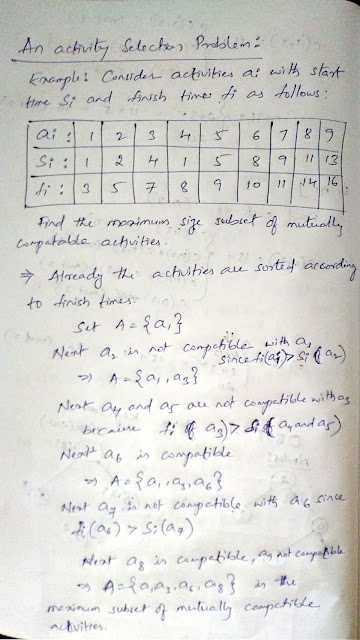 An activity Selection Problem:
Example: Consider activities ai with start
time Si and finish times fi as follows:
ai : 1 2 3 4 5 6 7 8 9
Si : 1 2 4 1 5 8 9 11 13
fi : 3 5 7 8 9 10 11 14 16
Find the maximum size subset of mutually
compatable activities.
⇒ Already the activities are sorted according
to finish times.
Set A = {a1}
Next a2 is not compatible with a1
since fi(a1) > Si(a2)
⇒ A = {a1, a3}
Next a4 and a5 are not compatible with a3
because fi (a3) > Si (a4 and a5)
Next a6 is compatible
⇒ A = {a1, a3, a6}
Next a7 is not compatible with a6 since
fi(a6) > Si(a7)
Next a8 is compatible, a9 not compatible
⇒ A = {a1, a3, a6, a8} is the
maximum subset of mutually compatible
activities.